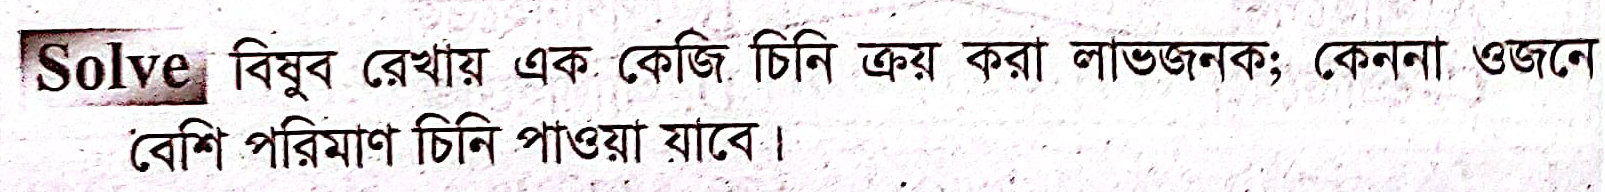 Solve বিষুব রেখায় এক কেজি চিনি ক্রয় করা লাভজনক; কেননা ওজনে
বেশি পরিমাণ চিনি পাওয়া যাবে।